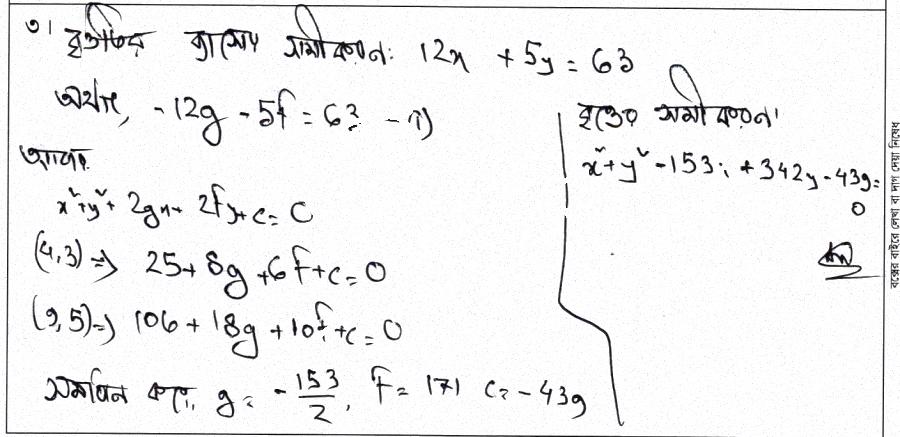 ৩। বৃত্তটির ব্যাসের সমীকরণ: 12x + 5y = 63
অর্থাৎ, -12g - 5f = 63 - i)
আবার
x²+y²+ 2gx+ 2fy+c = 0
(4,3) => 25+ 8g +6f+c=0
(9,5)=> 106+ 18g +10f+c=0
সমাধান করে, g = -153/2, f= 171 c= -439
বৃত্তের সমীকরণ
x²+y² -153x + 342y - 439=
0
বক্সের বাইরে লেখা বা দাগ দেয়া নিষেধ